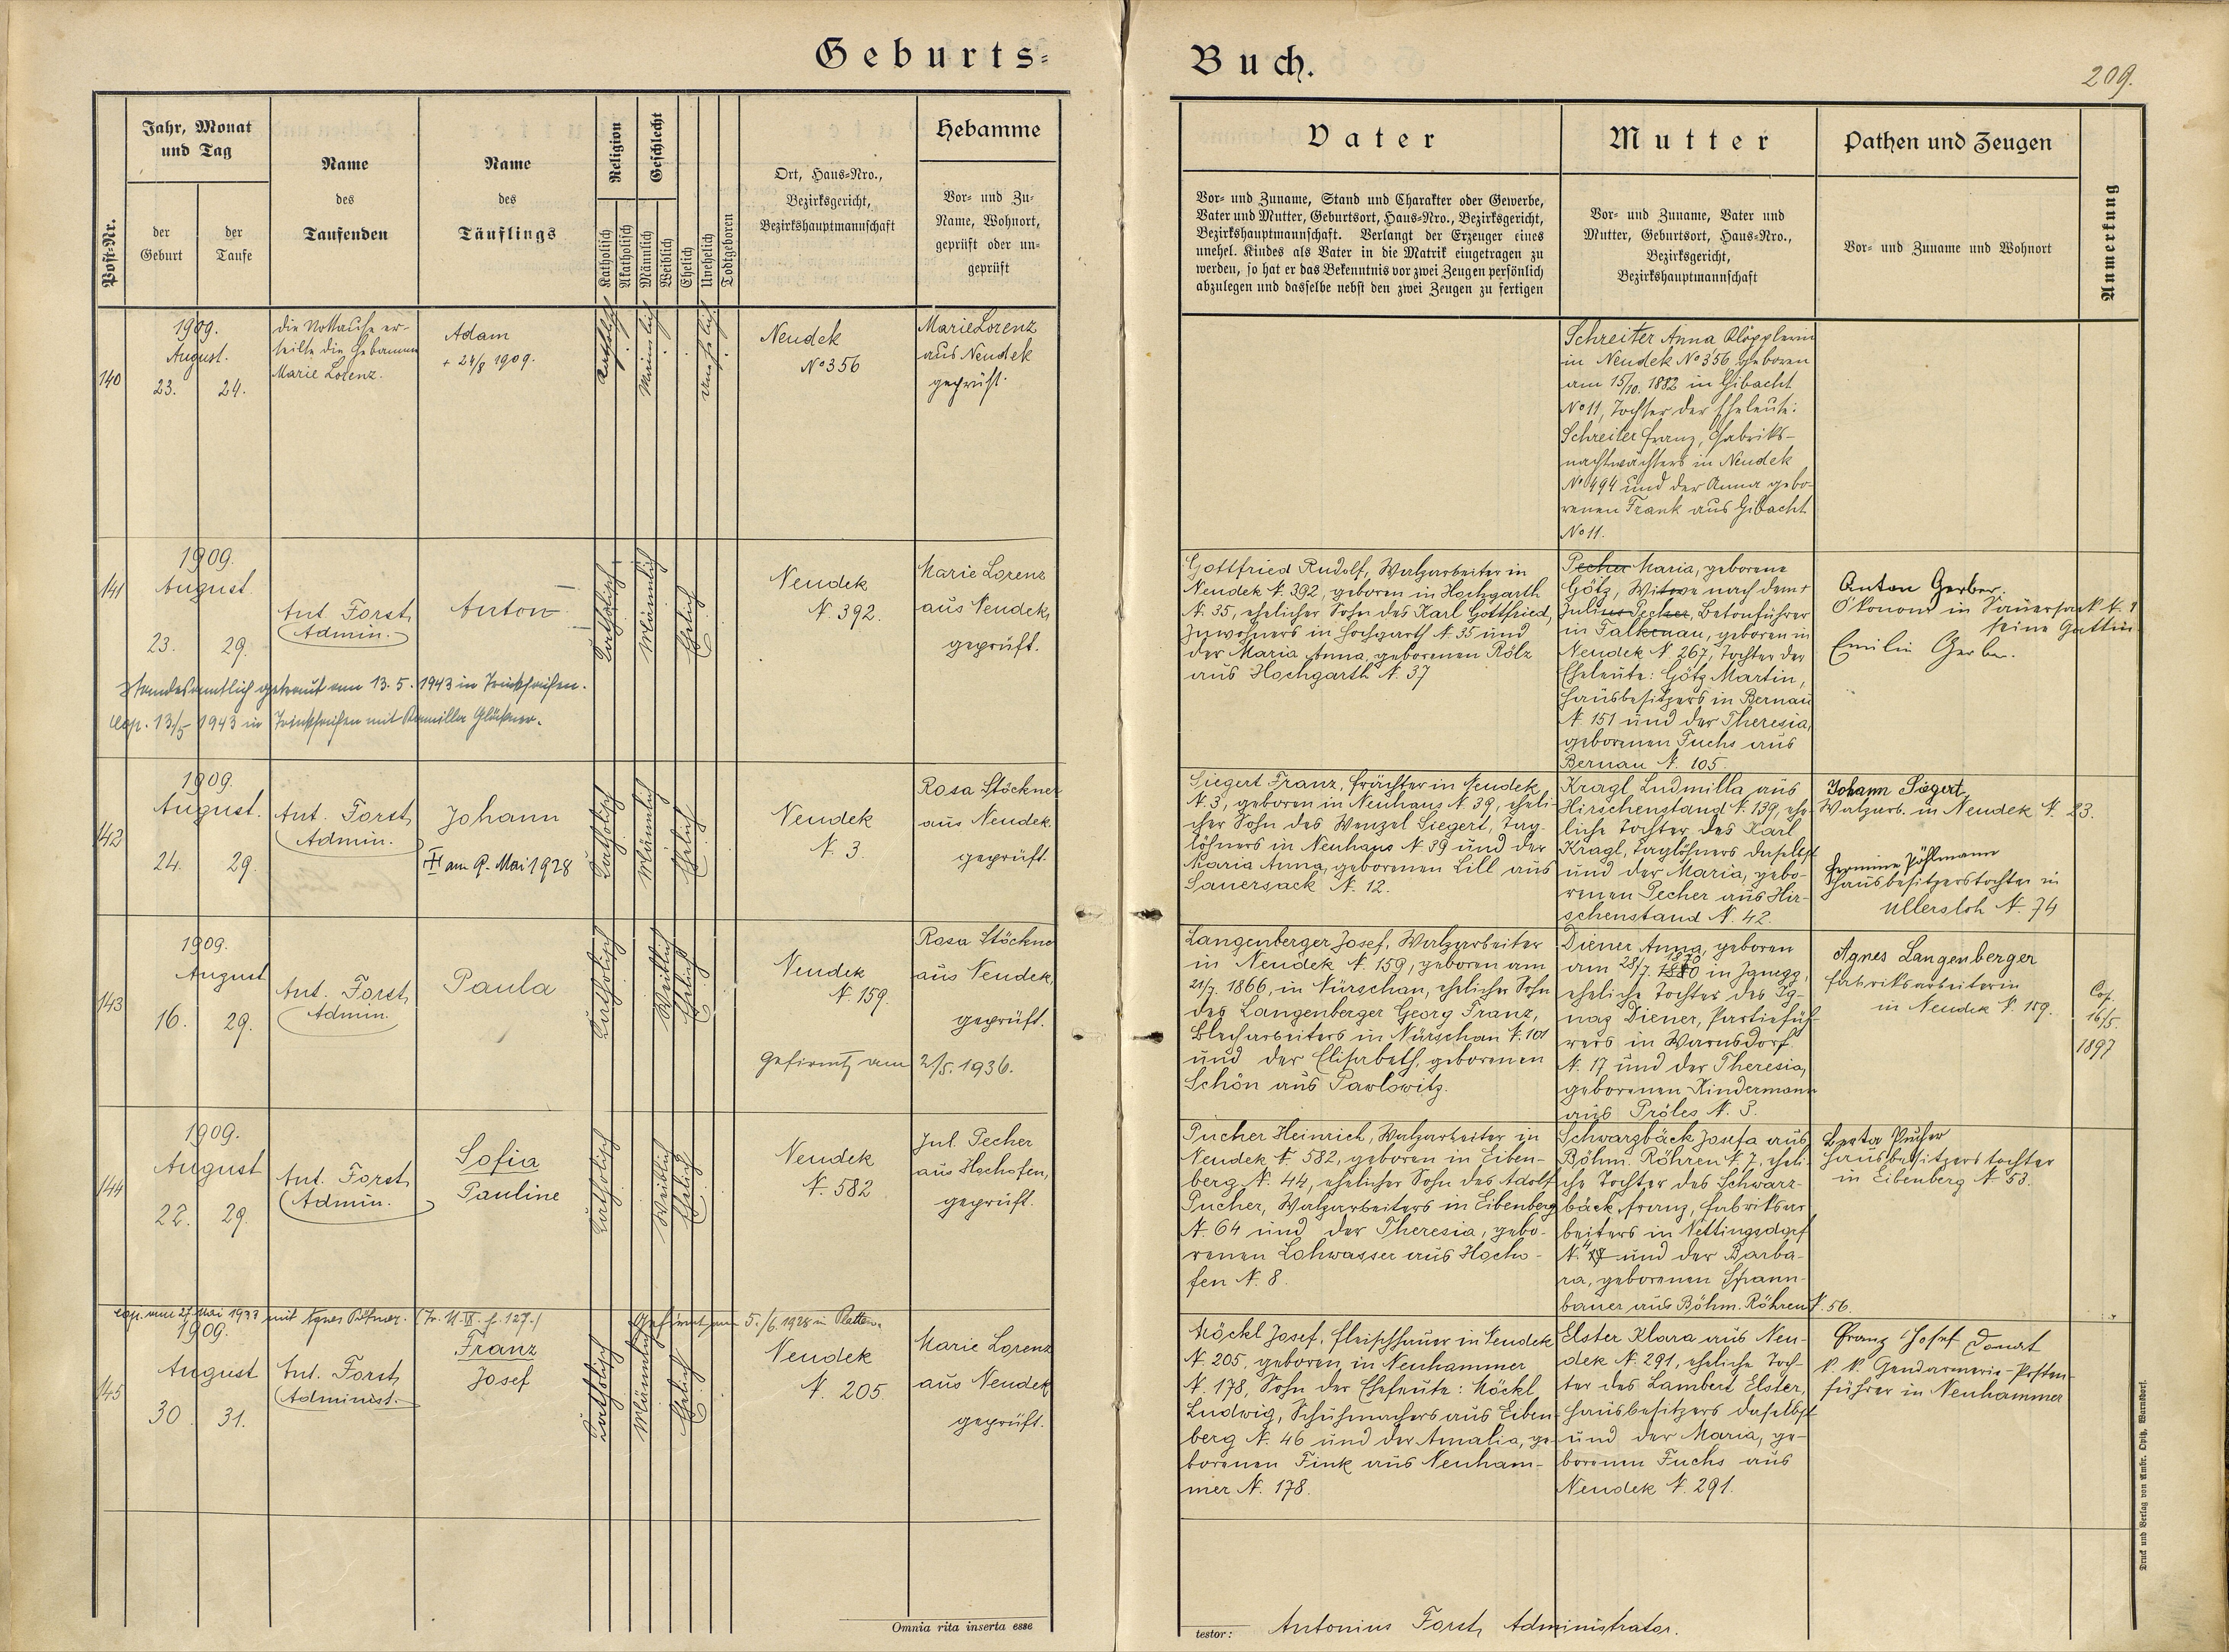 Geburts-
Buch.
209.
Post-Nr.
Jahr, Monat
und Tag
der
Geburt
der
Taufe
Name
des
Taufenden
Name
des
Täuflings
Religion
Katholisch
Akatholisch
Geschlecht
Männlich
Weiblich
Ehelich
Unehelich
Todtgeboren
Ort, Haus-Nro.,
Bezirksgericht,
Bezirkshauptmannschaft
Hebamme
Vor- und Zu-
Name, Wohnort,
geprüft oder un-
geprüft
Vater
Vor- und Zuname, Stand und Charakter oder Gewerbe,
Vater und Mutter, Geburtsort, Haus-Nro., Bezirksgericht,
Bezirkshauptmannschaft. Verlangt der Erzeuger eines
unehel. Kindes als Vater in die Matrik eingetragen zu
werden, so hat er das Bekenntnis vor zwei Zeugen persönlich
abzulegen und dasselbe nebst den zwei Zeugen zu fertigen
Mutter
Vor- und Zuname, Vater und
Mutter, Geburtsort, Haus-Nro.,
Bezirksgericht,
Bezirkshauptmannschaft
Pathen und Zeugen
Vor- und Zuname und Wohnort
Anmerkung
140
1909.
August.
23. 24.
die Nottaufe er-
teilte die Hebamme
Marie Lorenz.
Adam
+ 24/8 1909.
Katholisch
Männlich
Unehelich
Neudek
No 356
Marie Lorenz
aus Neudek
geprüft.
Schreiter Anna Klöpplerin
in Neudek No 356 geboren
am 15/10. 1882 in Gibacht
No 11, Tochter der Eheleute:
Schreiter Franz, Fabriks-
nachtwächters in Neudek
No 494 und der Anna gebo-
renen Frank aus Gibacht
No 11.
141
1909.
August
23. 29.
Ant. Forst,
Admin.
Anton
Katholisch
Männlich
Ehelich
Neudek
N. 392.
Marie Lorenz
aus Neudek,
geprüft.
Standesamtlich getraut am 13. 5. 1943 in Trinkseifen.
Cop. 13/5 1943 in Trinkseifen mit Kamilla
Gottfried Rudolf, Walzarbeiter in
Neudek N. 392, geboren in Hochgarth
N. 35, ehelicher Sohn des Karl Gottfried,
Inwohners in Hochgarth N. 35 und
der Maria Anna, geborenen Rölz
aus Hochgarth N. 37
Pecher Maria, geborene
Götz, Witwe nach dem +
Julius Pecher, Betonführer
in Falkenau, geboren in
Neudek N. 267, Tochter der
Eheleute: Götz Martin,
Hausbesitzers in Bernau
N. 151 und der Theresia,
geborenen Fuchs aus
Bernau N. 105.
Anton Gerber.
Ökonom in Sauersack N. 1
seine Gattin
Emilie Gerber.
142
1909.
August.
24. 29.
Ant. Forst,
Admin.
Johann
am 9. Mai 1928
Katholisch
Männlich
Ehelich
Neudek
N. 3.
Rosa Stöckner
aus Neudek,
geprüft.
Siegert Franz, Frächter in Neudek
N. 3, geboren in Neuhaus N. 39, eheli-
cher Sohn des Wenzel Siegert, Tag-
löhners in Neuhaus N. 39 und der
Maria Anna, geborenen Lill aus
Sauersack N. 12.
Kragl Ludmilla aus
Hirschenstand N. 139, ehe-
liche Tochter des Karl
Kragl, Taglöhners daselbst
und der Maria, gebo-
renen Pecher aus Hir-
schenstand N. 42.
Johann Siegert,
Walzarb. in Neudek N. 23.
Hermine Pöhlmann
Hausbesitzerstochter in
Ullersloh N. 74
143
1909.
August
16. 29.
Ant. Forst,
Admin.
Paula
Katholisch
Weiblich
Ehelich
Neudek
N. 159.
Rosa Stöckner
aus Neudek,
geprüft.
Gefirmt am 2./5. 1936.
Langenberger Josef, Walzarbeiter
in Neudek N. 159, geboren am
21/7. 1866, in Nürschan, ehelicher Sohn
des Langenberger Georg Franz,
Blecharbeiters in Nürschan N. 101
und der Elisabeth, geborenen
Schön aus Pawlowitz.
Diener Anna, geboren
am 28/7. in Janegg,
eheliche Tochter des Ig-
naz Diener, Partiefüh-
rers in Warnsdorf
N. 17 und der Theresia,
geborenen Kindermann
aus Pröles N. 3.
Agnes Langenberger
Fabriksarbeiterin
in Neudek N. 159.
Cop.
16/5.
1897
144
1909.
August
22. 29.
Ant. Forst,
Admin.
Sofia
Pauline
Katholisch
Weiblich
Ehelich
Neudek
N. 582
Jul. Pecher
aus Hochofen,
geprüft.
Pucher Heinrich, Walzarbeiter in
Neudek N. 582, geboren in Eiben-
berg N. 44, ehelicher Sohn des Adolf
Pucher, Walzarbeiters in Eibenberg
N. 64 und der Theresia, gebo-
renen Lohwasser aus Hocho-
fen N. 8.
Schwarzbäck Josefa aus
Böhm. Röhren N. 7, eheli-
che Tochter des Schwarz-
bäck Franz, Fabriksar-
beiters in Nettingsdorf
N. und der Barba-
ra, geborenen Spann-
bauer aus Böhm. Röhren N. 56.
Berta Pucher
Hausbesitzerstochter
in Eibenberg N. 53.
145
cop. am 27. Mai 1933 mit Agnes (Tr. U. IX. f. 127.)
Gefirmt am 5./6. 1928 in Platten.
1909.
August
30. 31.
Ant. Forst,
Administ.
Franz
Josef
Katholisch
Männlich
Ehelich
Neudek
N. 205
Marie Lorenz
aus Neudek
geprüft.
Möckl Josef, Fleischhauer in Neudek
N. 205, geboren in Neuhammer
N. 178, Sohn der Eheleute: Möckl
Ludwig, Schuhmachers aus Eiben-
berg N. 46 und der Amalia, ge-
borenen Fink aus Neuham-
mer N. 178.
Elster Klara aus Neu-
dek N. 291, eheliche Toch-
ter des Lambert Elster,
Hausbesitzers daselbst
und der Maria, ge-
borenen Fuchs aus
Neudek N. 291.
Franz Josef Donat
k. k. Gendarmerie-Posten-
führer in Neuhammer
Omnia rita inserta esse
testor: Antonius Forst, Administrator.
Druck und Verlag von Ambr. Opitz, Warnsdorf.